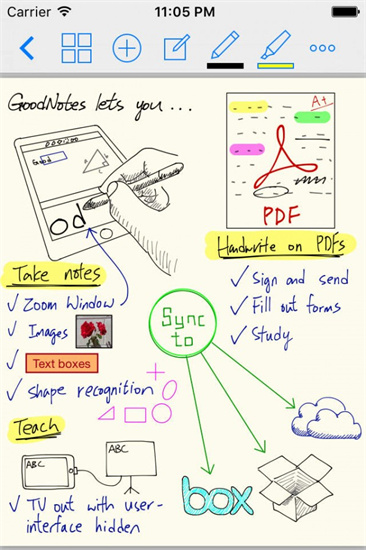 Carrier
11:05 PM
GoodNotes lets you ...
Good
od
A+
PDF
Handwrite on PDFs
Sign and send
Fill out forms
Study
Take notes
Zoom Window
Images
Text boxes
Shape recognition
Sync
to
Teach
ABC
ABC
TV out with user-
interface hidden
box